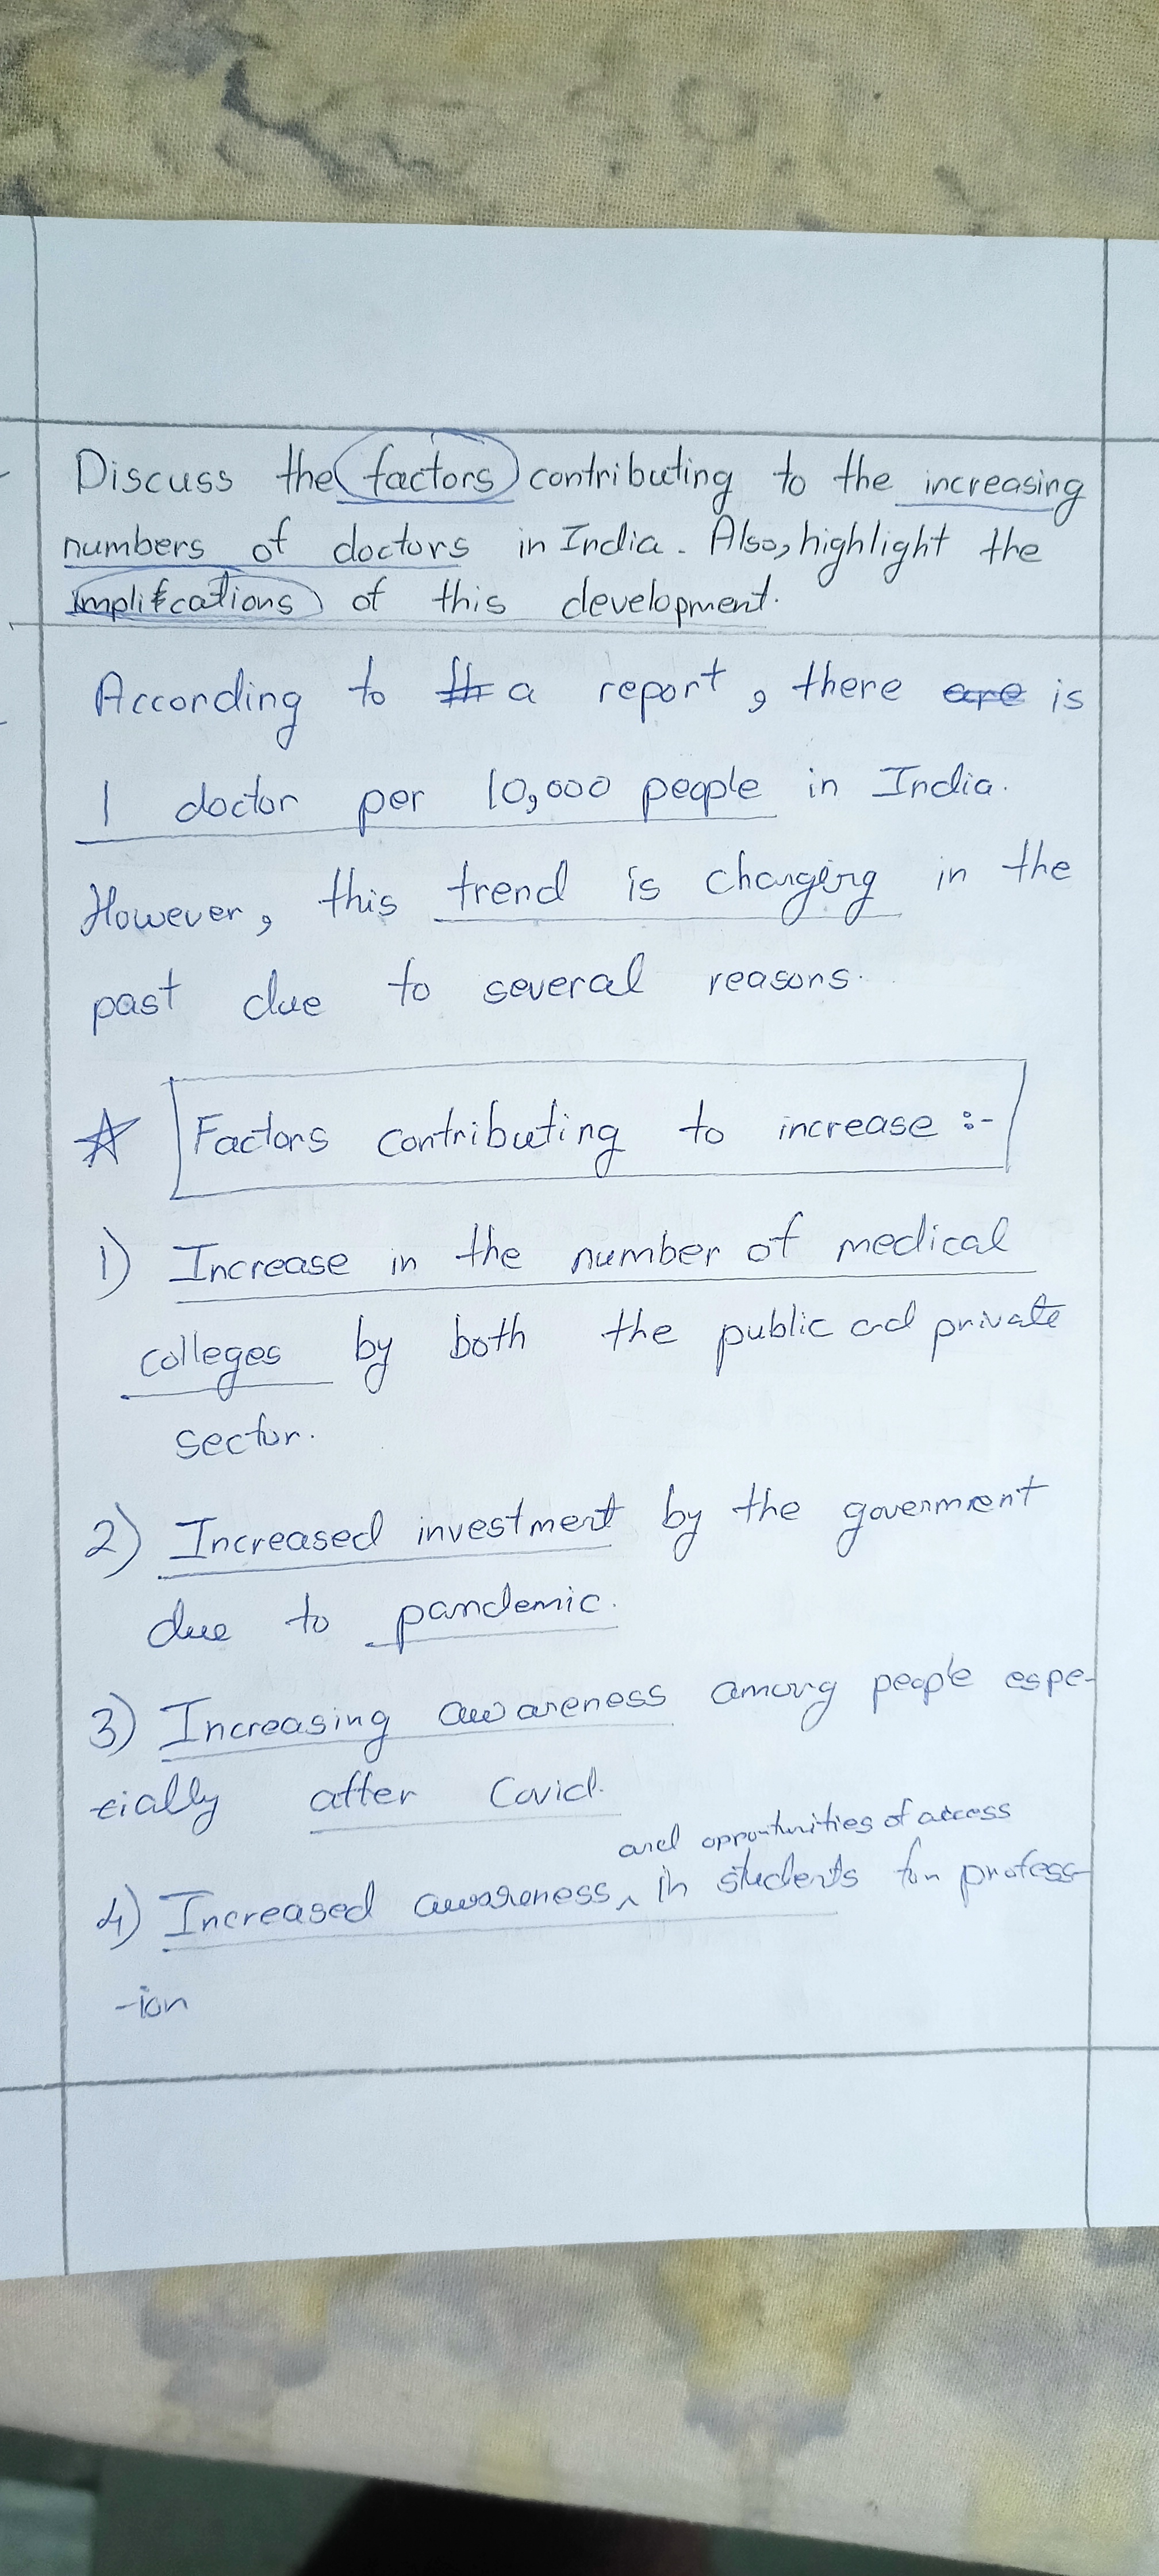 Discuss the factors contributing to the increasing
numbers of doctors in India. Also, highlight the
implifcations of this development.
According to a report, there are is
1 doctor per 10,000 people in India.
However, this trend is changing in the
past due to several reasons.
Factors contributing to increase :-
1) Increase in the number of medical
colleges by both the public and private
sector.
2) Increased investment by the government
due to pandemic.
3) Increasing awareness among people espe-
cially after Covid.
and opportunities of access
4) Increased awareness ^ in students for profess
-ion